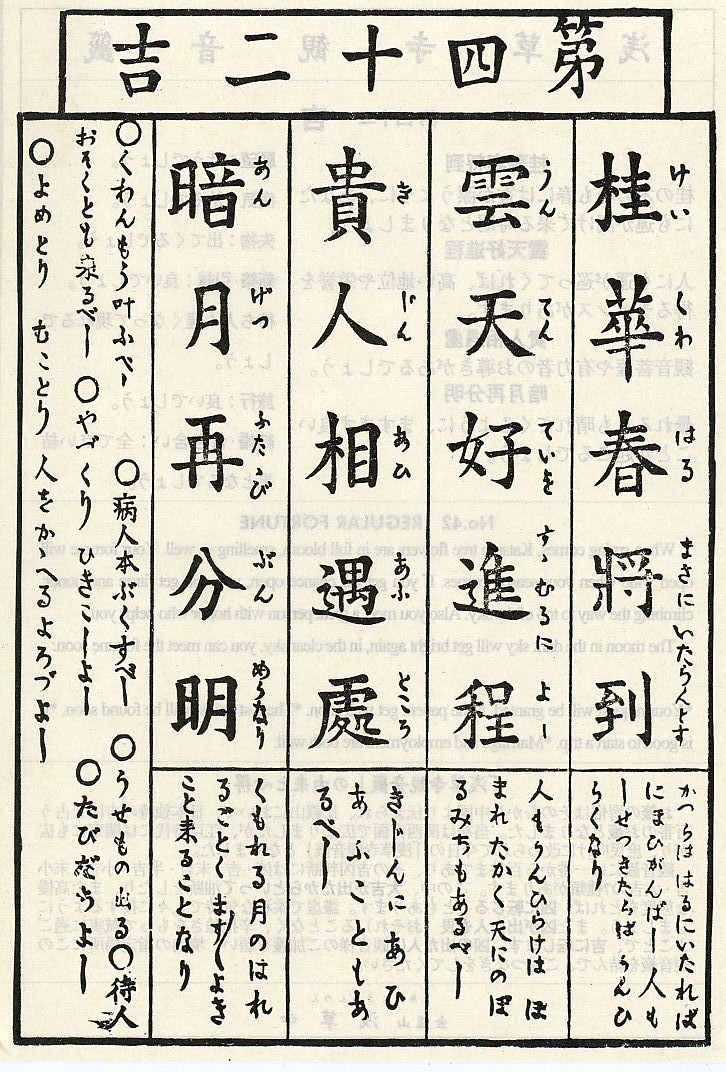 第四十二吉
けい くわ はる まさに いたらんとす
桂華春將到
かつらは はるにいたれば
にほひかんばし 人も
しせつきたらば うんひ
らくなり
うん てん ていを すゝむるに よし
雲天好進程
人もうんひらけは ほ
まれたかく天にのぼ
るみちもあるべし
き じん あひ あふ ところ
貴人相遇處
きじんにあひ
あふこともあ
るべし
あん げつ ふたゝび ぶん めうなり
暗月再分明
くもれる月のはれ
るごとくます〳〵よき
こと来るとなり
〇くわんもう叶ふべし 〇病人本ぶくすべし 〇うせもの出る〇待人
おそくとも来るべし 〇やづくり ひきこしよし 〇たびだちよし
〇よめとり むことり 人をかゝへるよろづよし